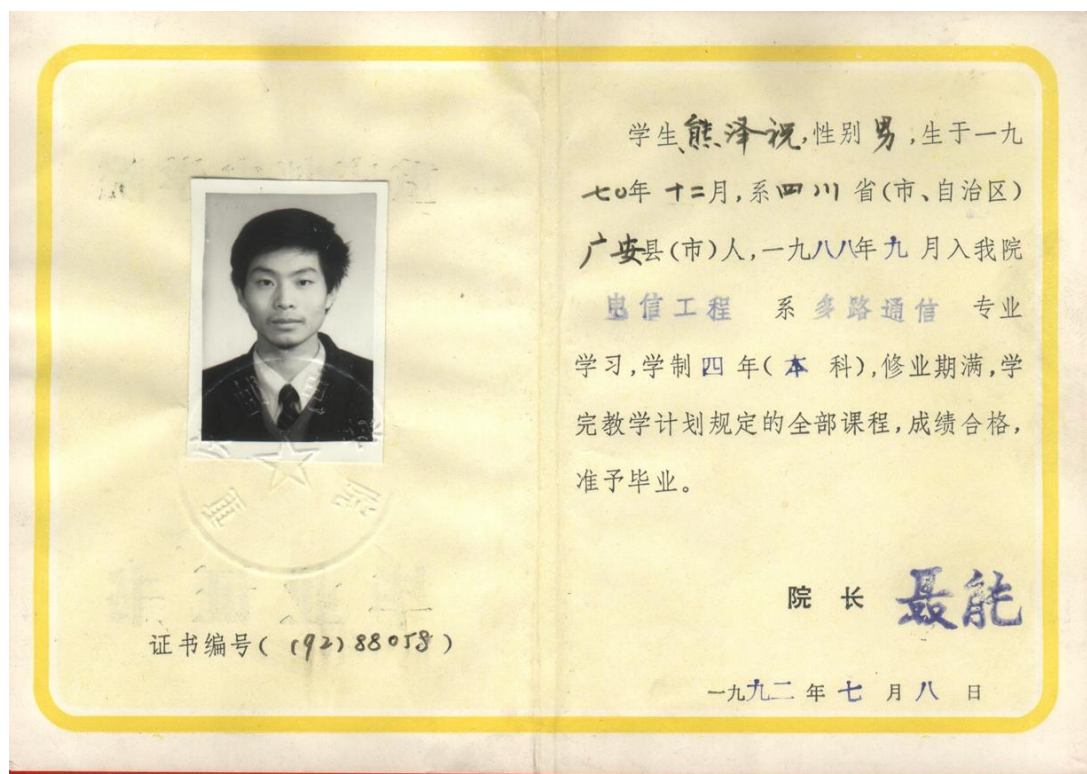 证书编号((92)88058)
学生熊泽祝,性别男,生于一九
七0年十二月,系四川省(市、自治区)
广安县(市)人,一九八八年九月入我院
电信工程 系 多路通信 专业
学习,学制四年(本科),修业期满,学
完教学计划规定的全部课程,成绩合格,
准予毕业。
院长 聂能
一九九二年七月八日